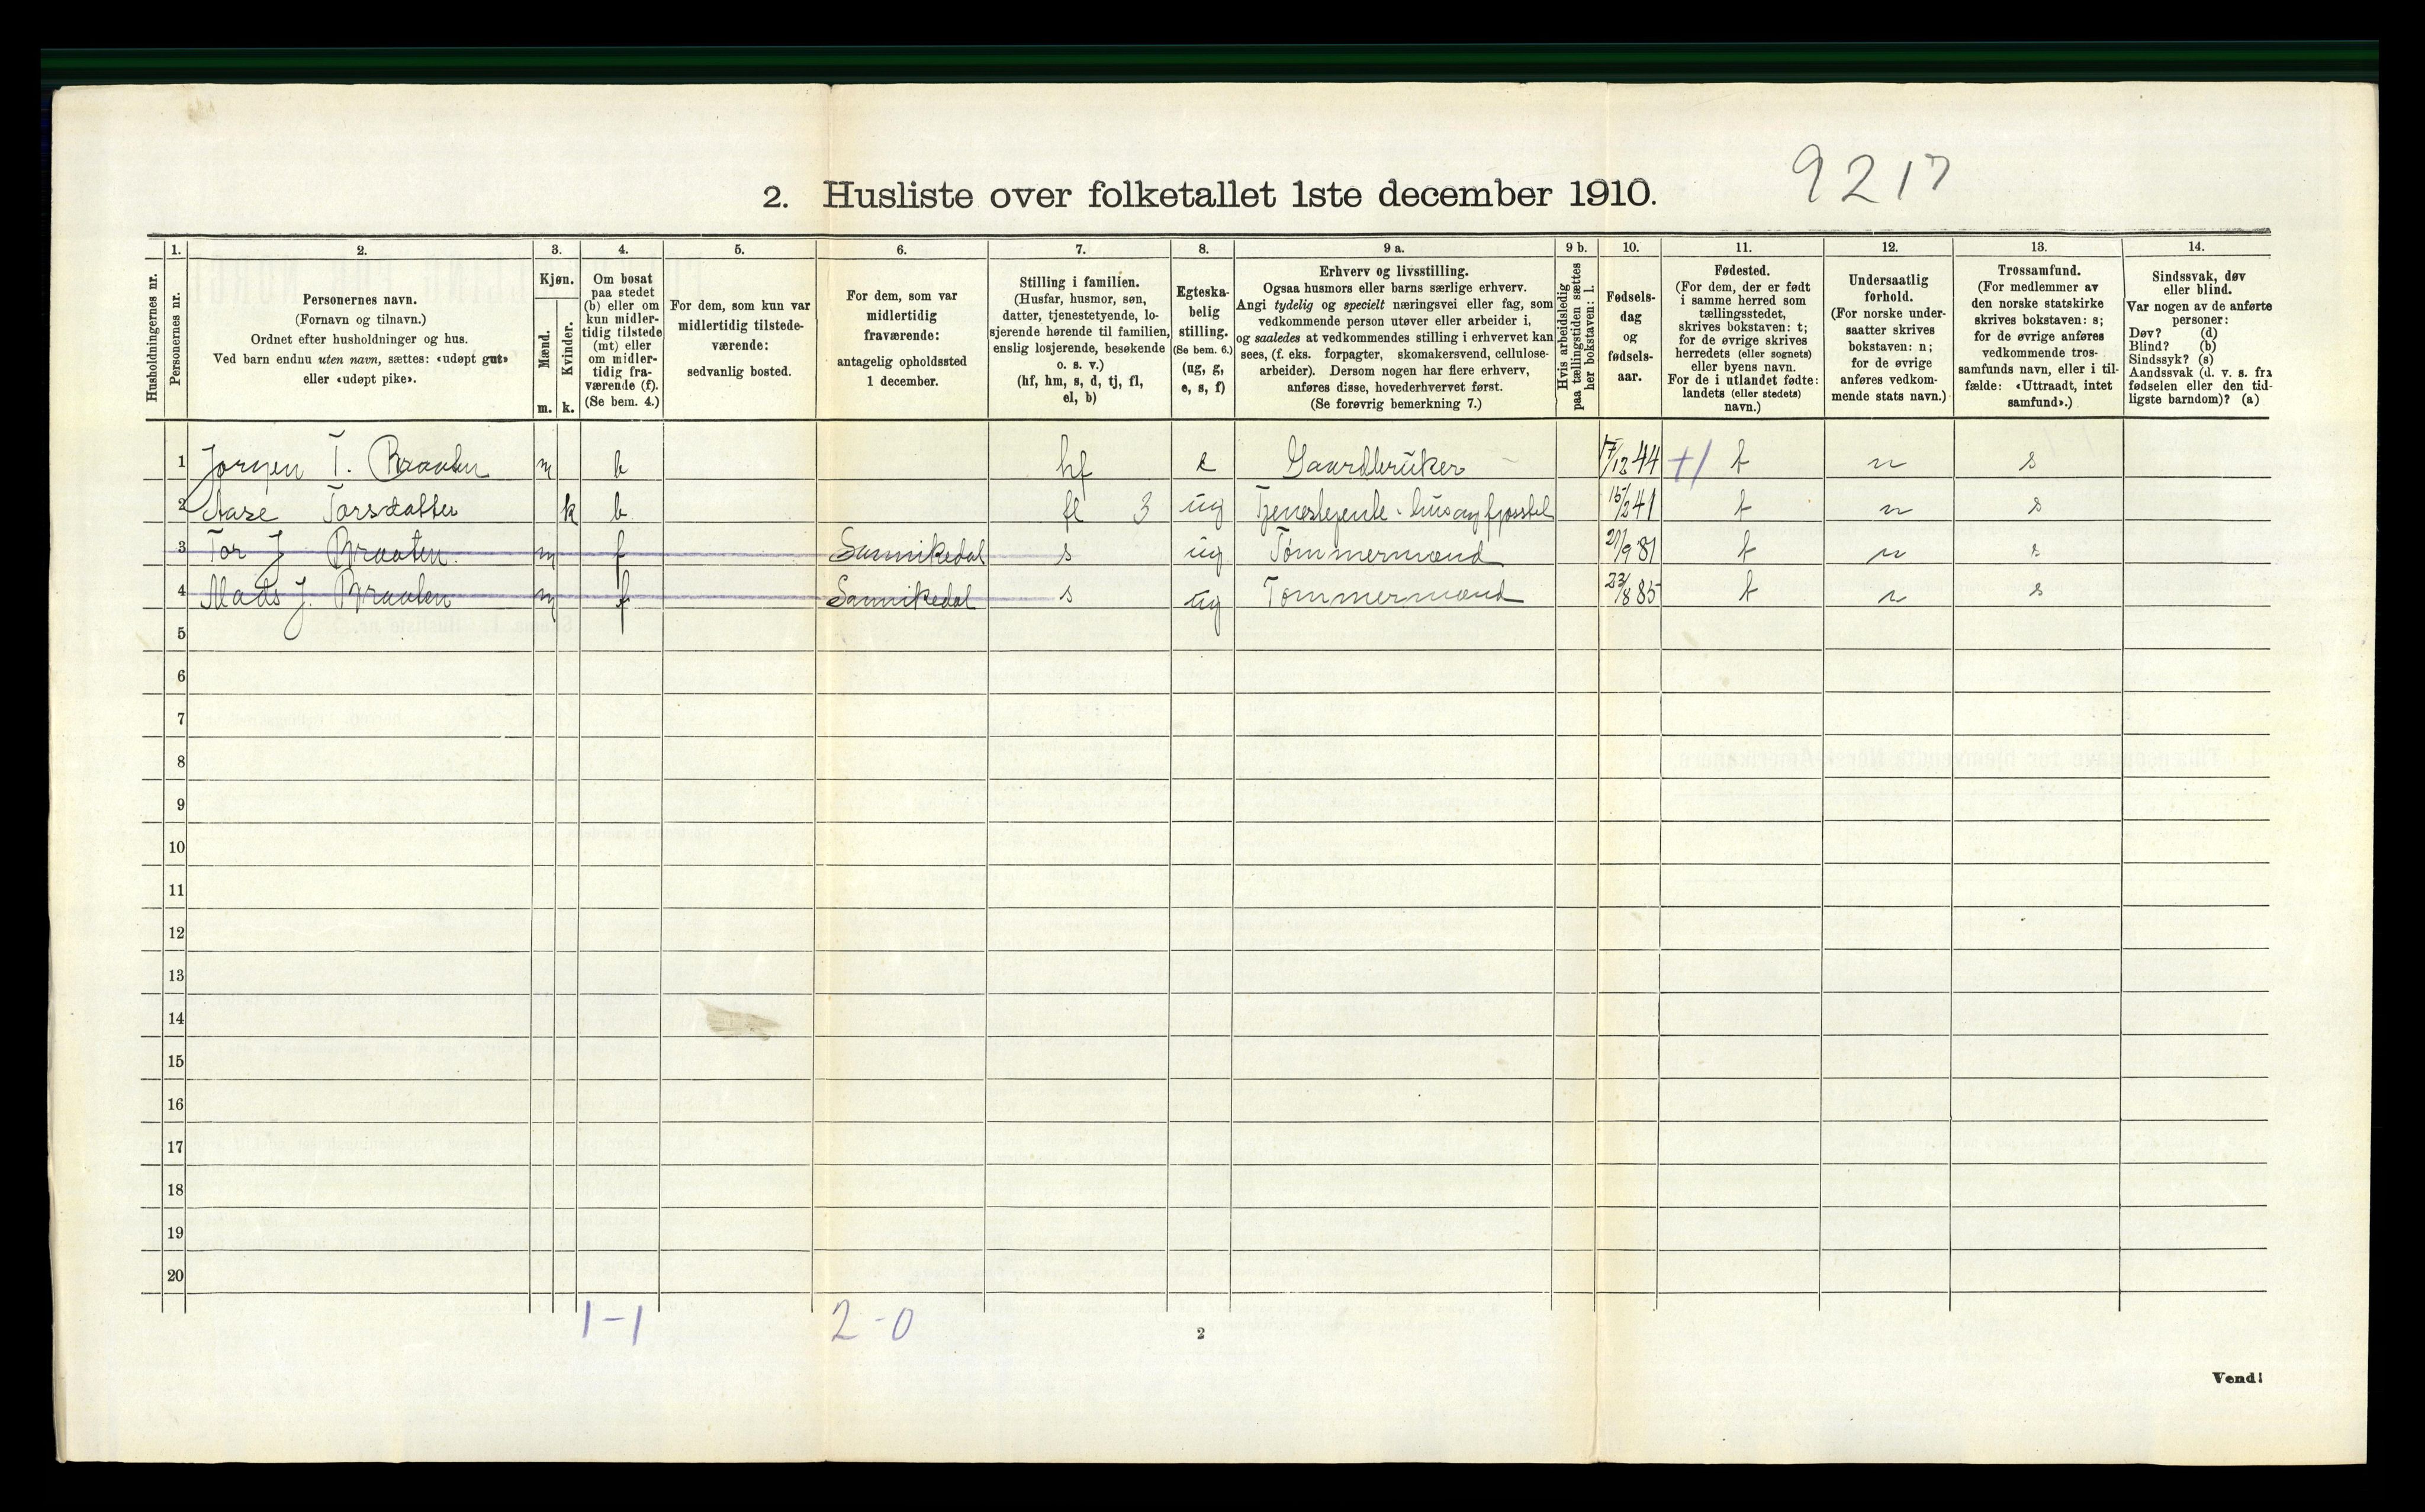 9217
2. Husliste over folketallet 1ste december 1910.
Husholdningernes nr.
1.
Personernes nr.
2.
Personernes navn.
(Fornavn og tilnavn.)
Ordnet efter husholdninger og hus.
Ved barn endnu uten navn, sættes: «udøpt gut»
eller «udøpt pike».
3.
Kjøn.
Mænd.
Kvinder.
m. k.
4.
Om bosat
paa stedet
(b) eller om
kun midler-
tidig tilstede
(mt) eller
om midler-
tidig fra-
værende (f).
(Se bem. 4.)
5.
For dem, som kun var
midlertidig tilstede-
værende:
sedvanlig bosted.
6.
For dem, som var
midlertidig
fraværende:
antagelig opholdssted
1 december.
7.
Stilling i familien.
(Husfar, husmor, søn,
datter, tjenestetyende, lo-
sjerende hørende til familien,
enslig losjerende, besøkende
o. s. v.)
(hf, hm, s, d, tj, fl,
el, b)
8.
Egteska-
belig
stilling.
(Se bem. 6.)
(ug, g,
e, s, f)
9 a.
Erhverv og livsstilling.
Ogsaa husmors eller barns særlige erhverv.
Angi tydelig og specielt næringsvei eller fag, som
vedkommende person utøver eller arbeider i,
og saaledes at vedkommendes stilling i erhvervet kan
sees, (f. eks. forpagter, skomakersvend, cellulose-
arbeider). Dersom nogen har flere erhverv,
anføres disse, hovederhvervet først.
(Se forøvrig bemerkning 7.)
9 b.
Hvis arbeidsledig
paa tællingstiden sættes
her bokstaven: l.
10.
Fødsels-
dag
og
fødsels-
aar.
11.
Fødested.
(For dem, der er født
i samme herred som
tællingsstedet,
skrives bokstaven: t;
for de øvrige skrives
herredets (eller sognets)
eller byens navn.
For de i utlandet fødte:
landets (eller stedets)
navn.)
12.
Undersaatlig
forhold.
(For norske under-
saatter skrives
bokstaven: n;
for de øvrige
anføres vedkom-
mende stats navn.)
13.
Trossamfund.
(For medlemmer av
den norske statskirke
skrives bokstaven: s;
for de øvrige anføres
vedkommende tros-
samfunds navn, eller i til-
fælde: «Uttraadt, intet
samfund».)
14.
Sindssvak, døv
eller blind.
Var nogen av de anførte
personer:
Døv? (d)
Blind? (b)
Sindssyk? (s)
Aandssvak (d. v. s. fra
fødselen eller den tid-
ligste barndom)? (a)
1 Jørgen T. Braaten m b hf e Gaardbruker 17/12 44 +/ t n s
2 Aase Torsdatter k b fl 3 ug 15/2 41 t n s
3 Tor J Braaten. m f Sannikedal s ug Tømmermand 21/9 81 t n s
4 Mads J. Braaten m f Sannikedal s ug Tømmermand 23/8 85 t n s
5
6
7
8
9
10
11
12
13
14
15
16
17
18
19
20
1-1 2-0
2
Vend!